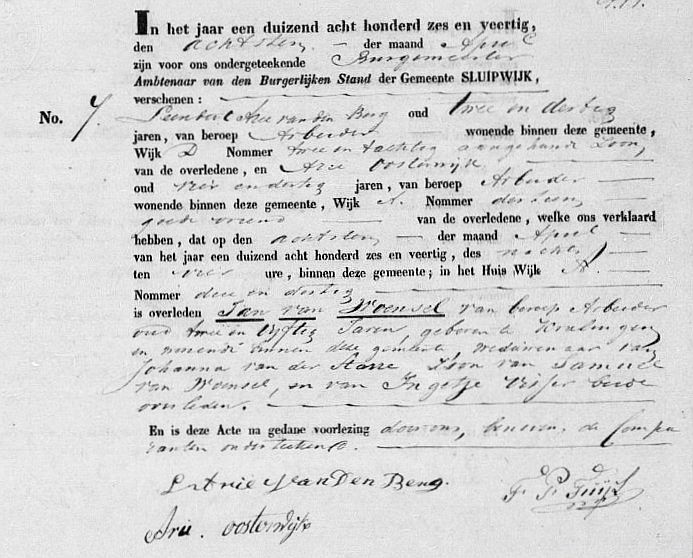 In het jaar een duizend acht honderd zes en veertig,
den achtsten der maand April
zijn voor ons ondergeteekende Burgemeester
Ambtenaar van den Burgerlijken Stand der Gemeente SLUIPWIJK,
verschenen:
No. 7. Leendert Arie van den Berg oud twee en dertig
jaren, van beroep Arbeider wonende binnen deze gemeente,
Wijk D Nommer twee en tachtig aangehuwde Zoon,
van de overledene, en Arie Oosterwijk
oud vier en dertig jaren, van beroep Arbeider
wonende binnen deze gemeente, Wijk A. Nommer dertien
goede vriend van de overledene, welke ons verklaard
hebben, dat op den achtsten der maand April
van het jaar een duizend acht honderd zes en veertig, des nachts
ten vier ure, binnen deze gemeente; in het Huis Wijk A.
Nommer drie en dertig
is overleden Jan van Woensel van beroep Arbeider
oud twee en vijftig Jaren, geboren te Kralingen
en wonende binnen deze gemeente weduwenaar van
Johanna van der Starre Zoon van Samuel
van Woensel, en van Ingetje Visser beide
overleden.
En is deze Acte na gedane voorlezing door ons, benevens de Compa
ranten onderteekend.
L Arie Van Den Berg.
Arie. oosterwijk